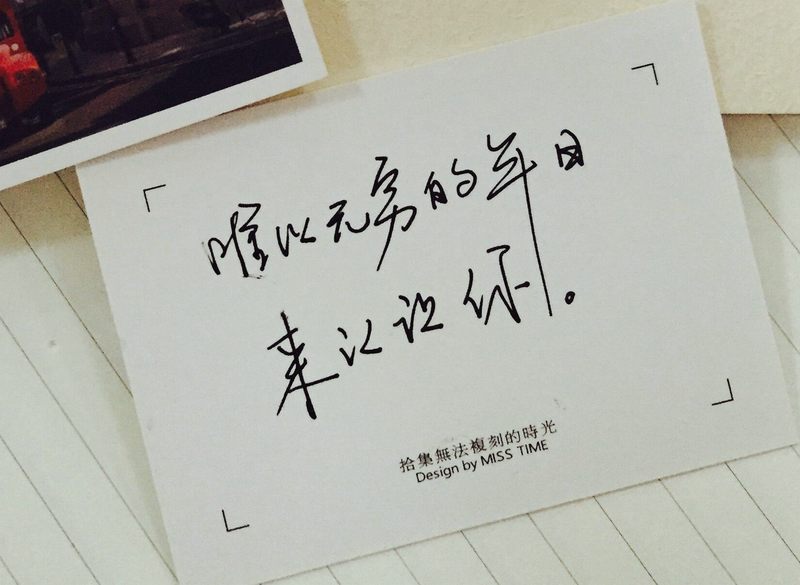 唯以无穷的年日
来认识你。
拾集無法複刻的時光
Design by MISS TIME